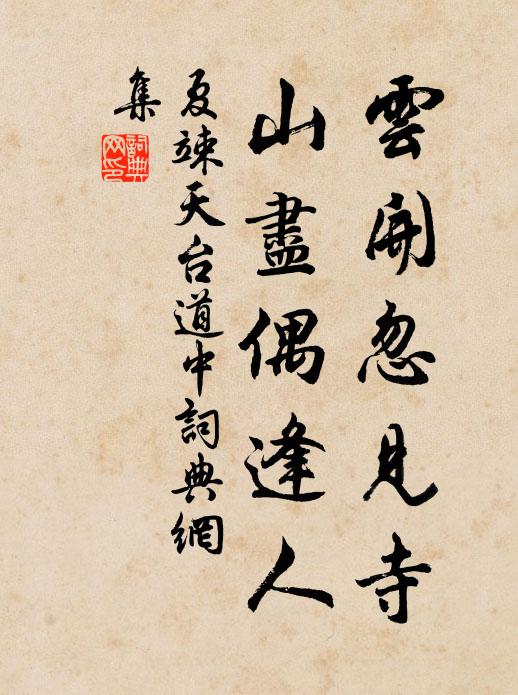 雲開忽見寺
山盡偶逢人
夏竦天台道中詞典網
集
詞典
网印